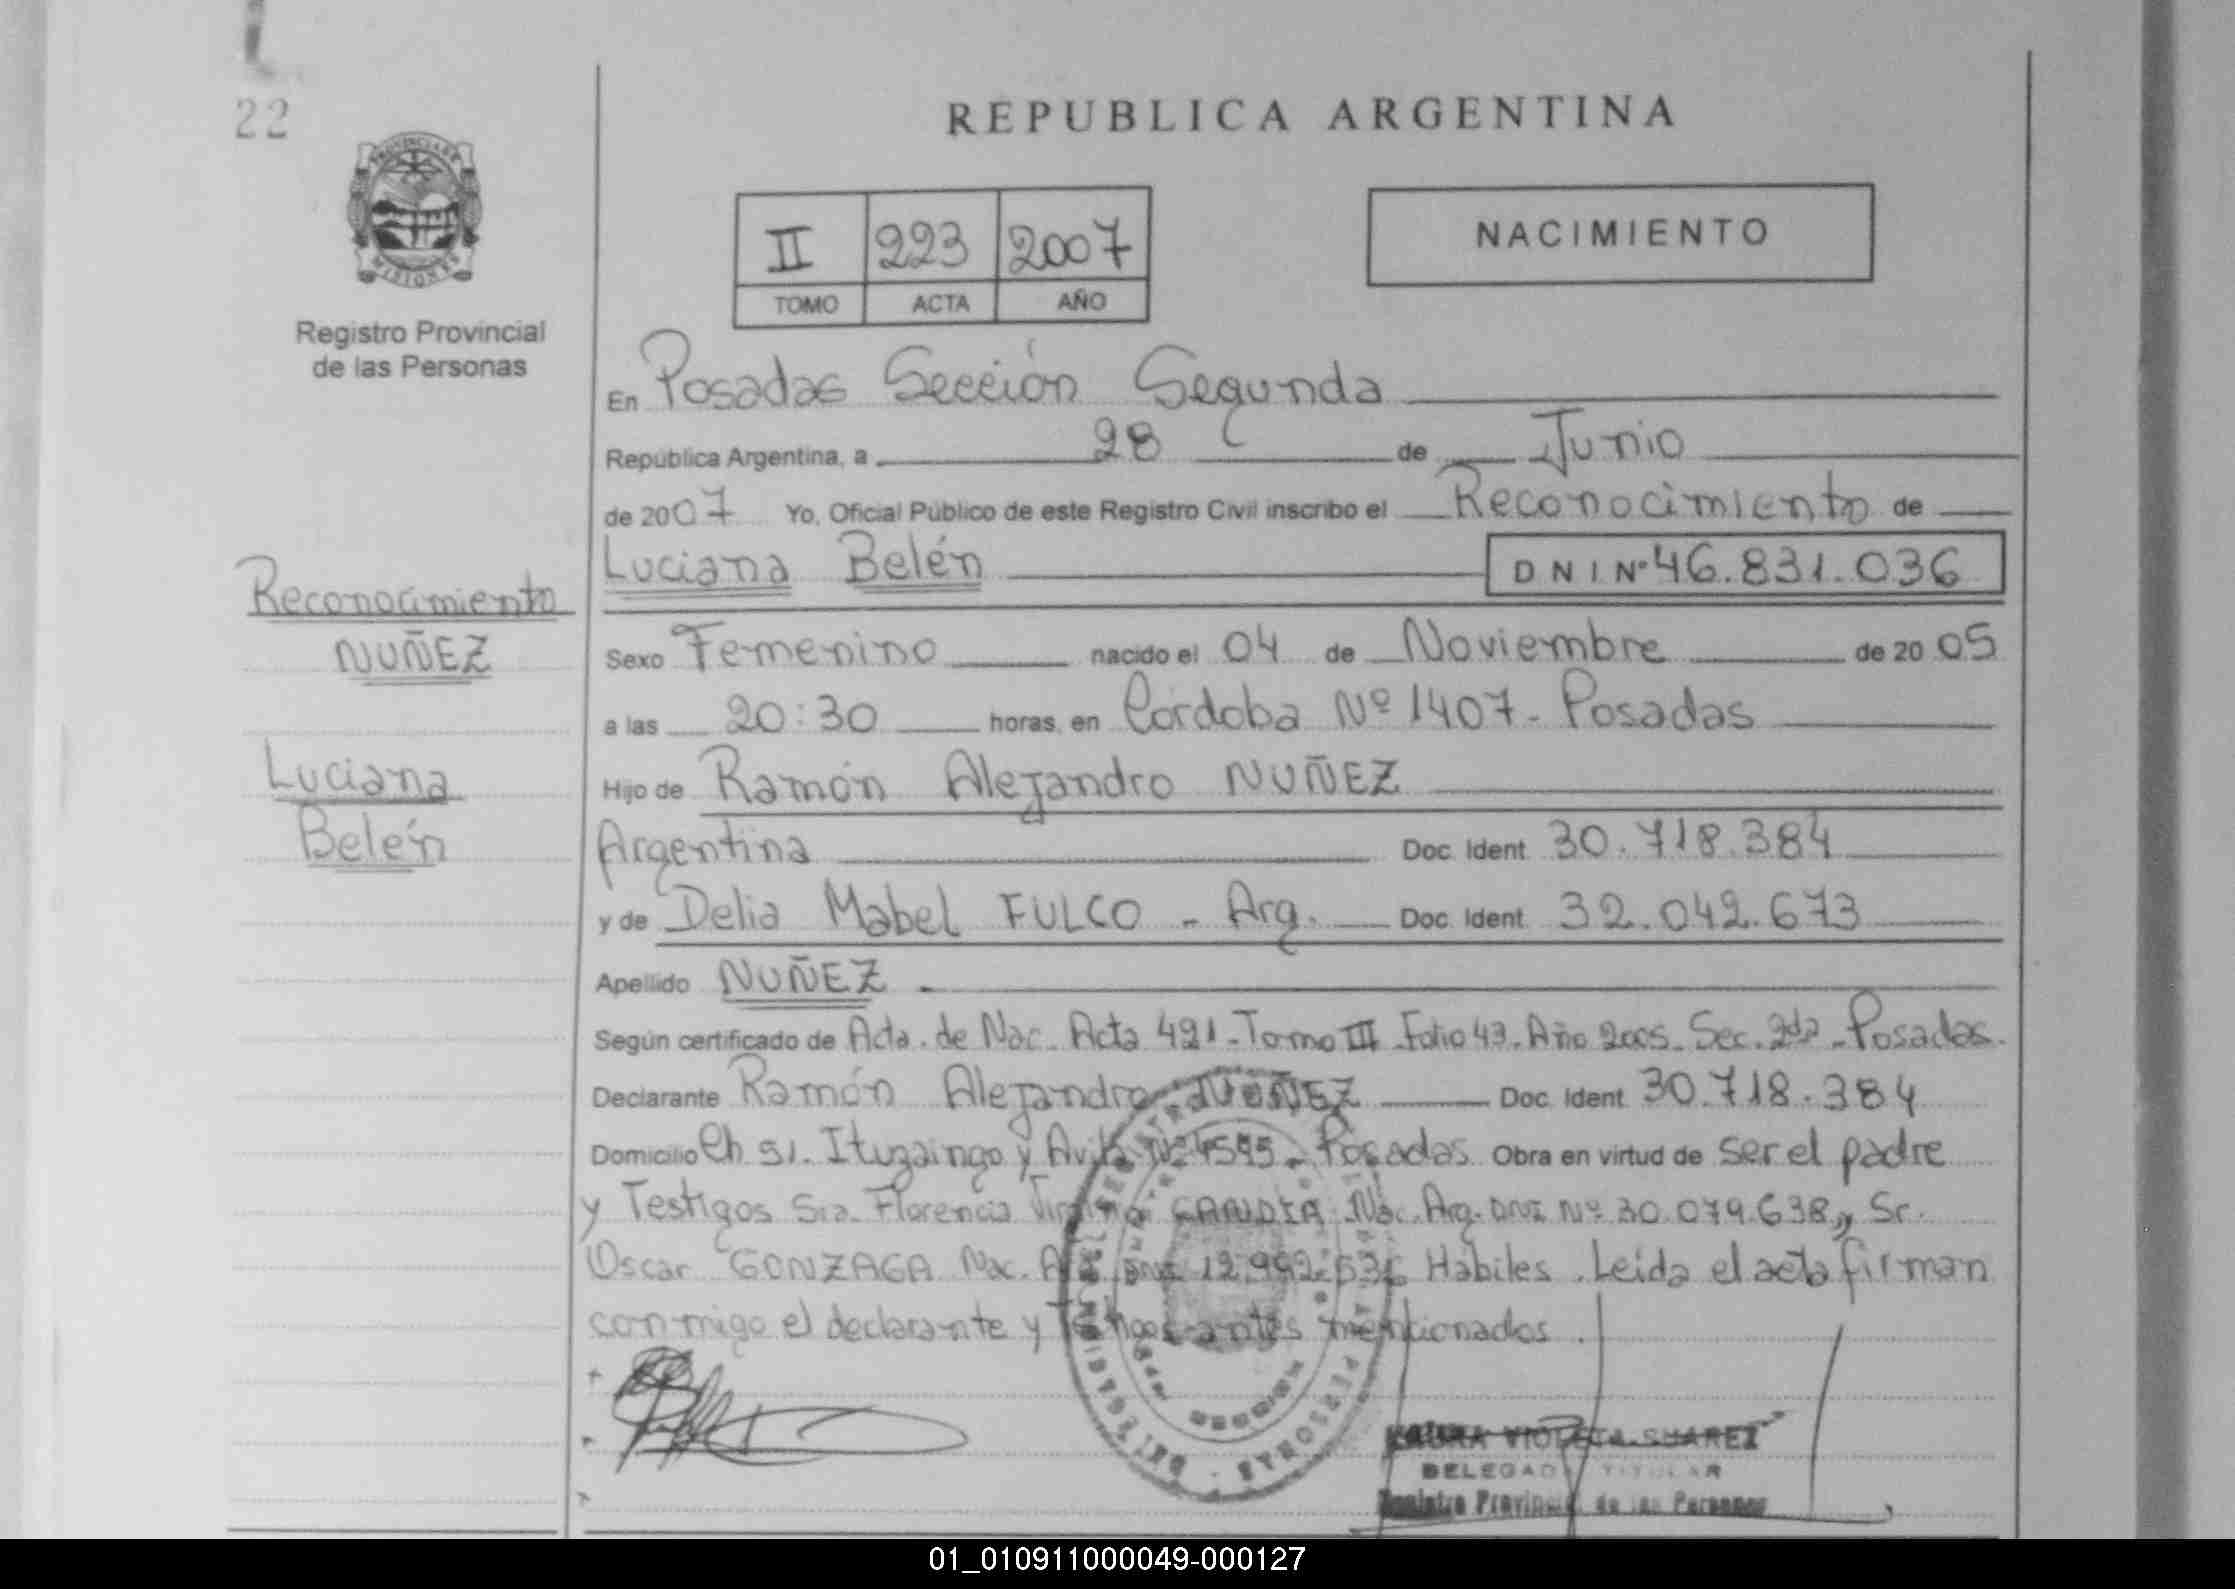 22
PROVINCIA DE
MISIONES
Registro Provincial
de las Personas
REPUBLICA ARGENTINA
II 223 2007
TOMO ACTA AÑO
NACIMIENTO
En Posadas Sección Segunda
República Argentina, a 28 de Junio
de 2007 Yo, Oficial Público de este Registro Civil inscribo el Reconocimiento de
Luciana Belén DNI Nº 46.831.036
Reconocimiento
NUÑEZ
Luciana
Belén
Sexo Femenino nacido el 04 de Noviembre de 2005
a las 20:30 horas, en Córdoba Nº 1407 - Posadas
Hijo de Ramón Alejandro NUÑEZ
Argentina Doc. Ident. 30.718.384
y de Delia Mabel FULCO - Arg. Doc. Ident. 32.042.673
Apellido NUÑEZ.
Según certificado de Acta. de Nac. Acta 421 - Tomo III Folio 43. Año 2005. Sec. 2da - Posadas.
Declarante Ramón Alejandro NUÑEZ Doc. Ident. 30.718.384
Domicilio Ch 51. Ituzaingo y Nº 4595 - Posadas Obra en virtud de ser el padre
y Testigos Sra. Florencia Virginia Nac. Arg. DNI Nº 30.079.638, Sr.
Oscar GONZAGA Nac. DNI Hábiles. Leída el acta firman
conmigo el declarante y Testigos antes mencionados.
LAURA VIOLETA SUAREZ
DELEGADA TITULAR
Registro Provincial de las Personas
01_010911000049-000127